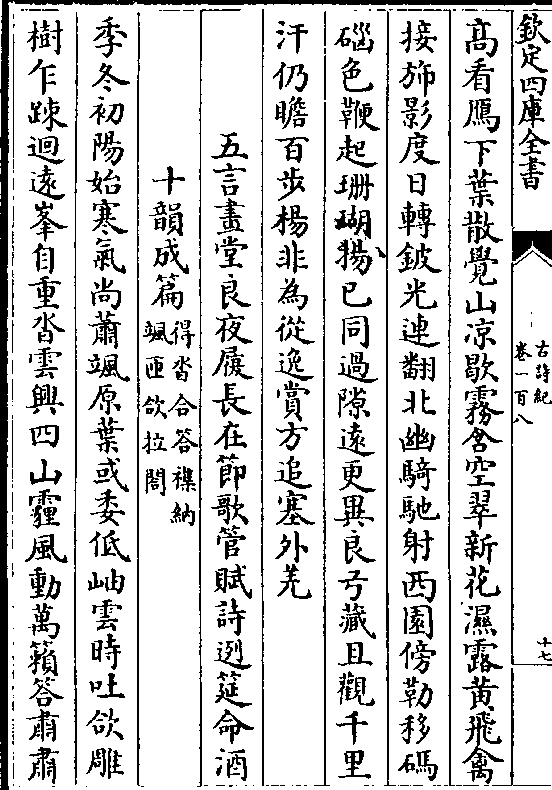 欽定四庫全書
古詩紀
卷一百八
十七
高看鴈下葉散覺山凉歇霧含空翠新花濕露黄飛禽
接斾影度日轉鈹光連翻北幽騎馳射西園傍勒移碼
碯色鞭起珊瑚揚已同過隙遠更異良弓藏且觀千里
汗仍瞻百步楊非為從逸賞方追塞外羌
五言畫堂良夜履長在節歌管賦詩迾筵命酒
十韻成篇得沓合答襍納
颯匝欱拉閤
季冬初陽始寒氣尚蕭颯原葉或委低岫雲時吐欱雕
樹乍踈迴遠峯自重沓雲興四山霾風動萬籟答肅肅